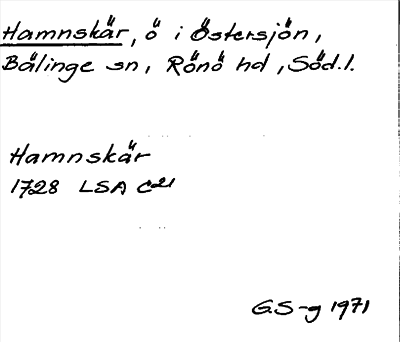 Hamnskär, ö i Östersjön,
Bälinge sn, Rönö hd, Söd.l.
Hamnskär
1728 LSA C21
G.S-g 1971